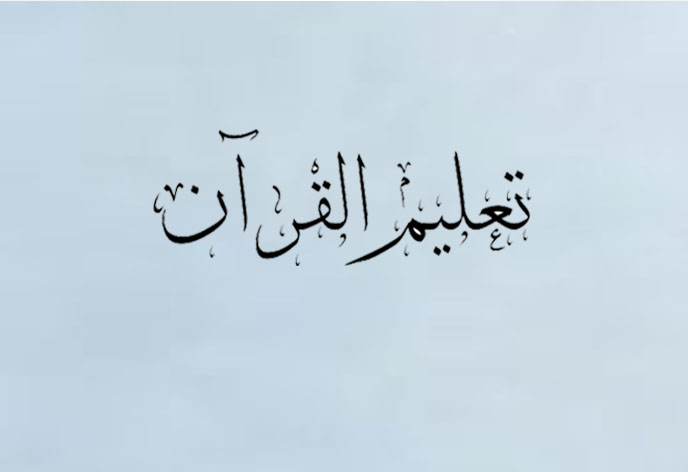 تعليم القرآن